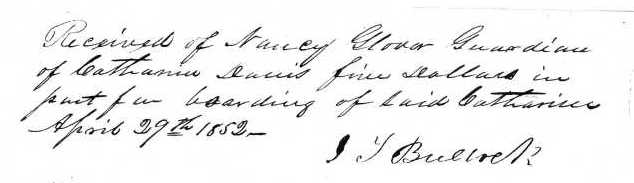 Received of Nancy Glover Guardian
of Catharine Davis five Dollars in
part for boarding of Said Catharine
April 29th 1852–
J T Bullock